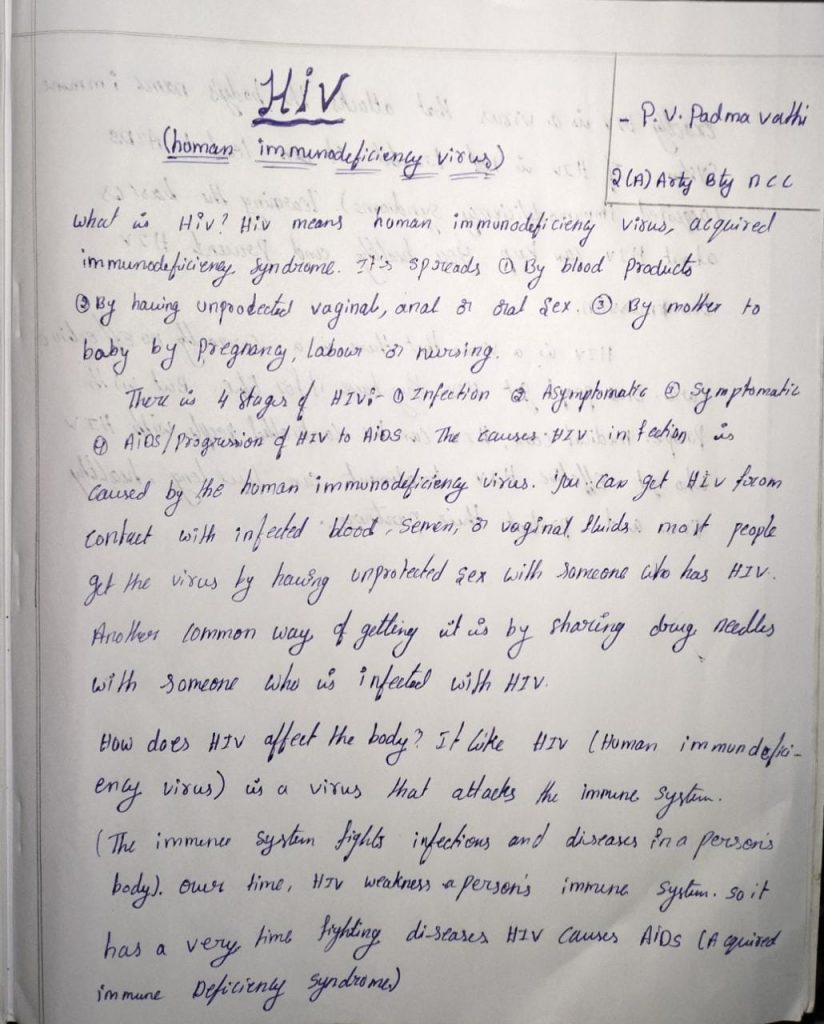 HIV
- P. V. Padma vathi
(human immunodeficiency virus)
2(A) Arty Bty NCC
what is HIV? HIV means human immunodeficiency virus, acquired
immunodeficiency Syndrome. It's spreads ① By blood products
② By having unprotected vaginal, anal or oral sex. ③ By mother to
baby by pregnancy, labour or nursing.
There is 4 stages of HIV:- ① Infection ② Asymptomatic ③ Symptomatic
④ AIDS/Progression of HIV to AIDS. The causes HIV infection is
caused by the human immunodeficiency virus. you can get HIV from
contact with infected blood, semen, or vaginal fluids. most people
get the virus by having unprotected sex with someone who has HIV.
Another common way of getting it is by sharing drug needles
with someone who is infected with HIV.
How does HIV affect the body? It like HIV (Human immundefici-
ency virus) is a virus that attacks the immune system.
(The immunee system fights infections and diseases in a person's
body). over time, HIV weakness a person's immune system. so it
has a very time fighting di-seases HIV causes AIDS (Acquired
immune Deficiency syndrome)